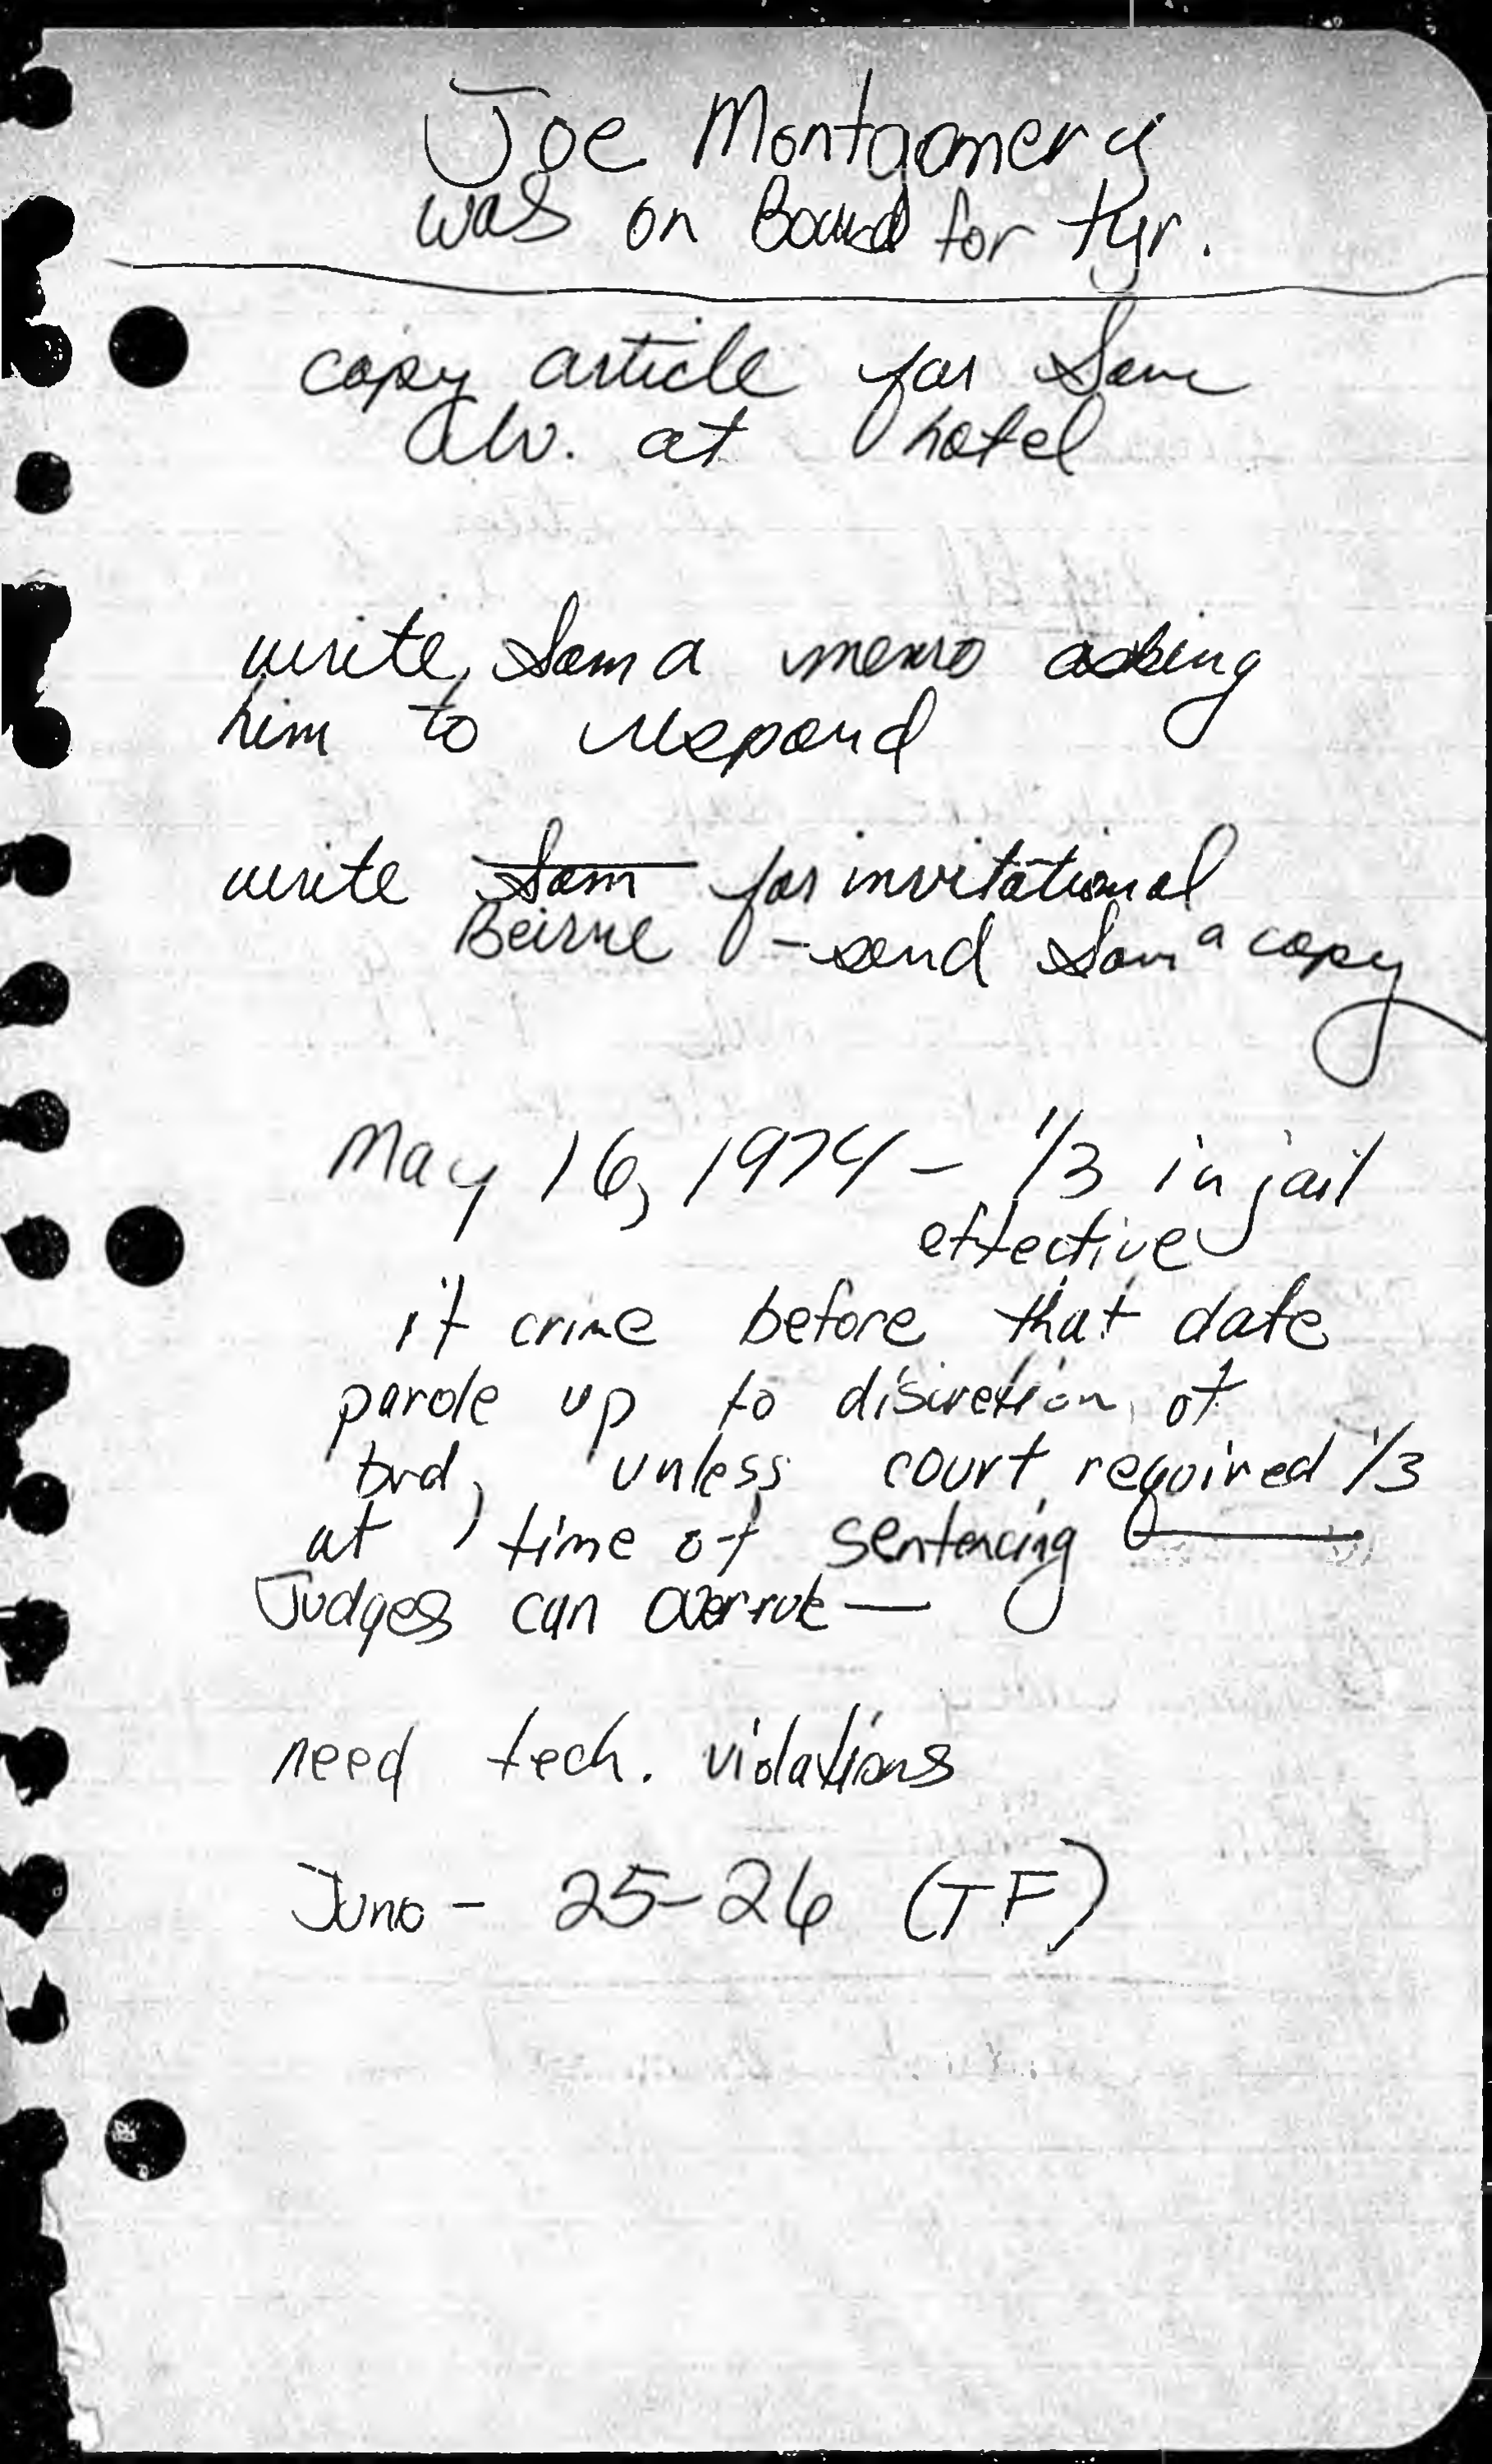 Joe Montgomery
was on Board for tyr.
copy article for Sam
at hotel
write Sam a memo asking
him to respond
write Sam for invitational
Beirne - send Sam a copy
May 16, 1974 - 1/3 in jail
effective
if crime before that date
parole up to discretion of
brd, unless court required 1/3
at time of sentencing
Judges can overrule —
need tech. violations
Juno - 25-26 (TF)